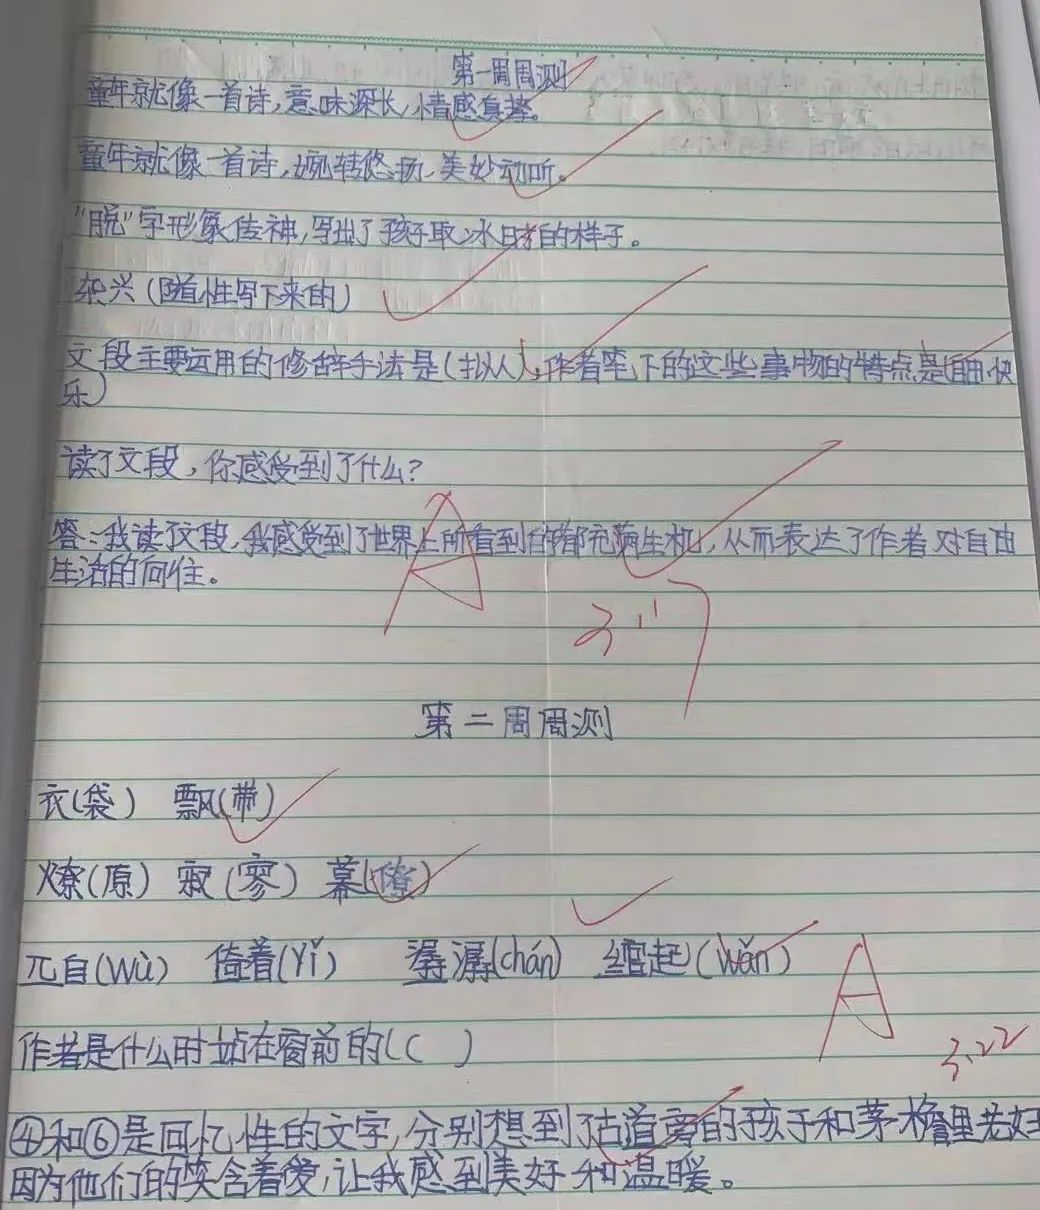 第一周周测
童年就像一首诗,意味深长,情感真挚。
童年就像一首诗,婉转悠扬,美妙动听。
"脱"字形象传神,写出了孩子取冰时的样子。
杂兴(随性写下来的)
文段主要运用的修辞手法是(拟人),作者笔下的这些事物的特点是(自由 快
乐)
读了文段,你感受到了什么?
答:我读了文段,我感受到了世界上所看到的都充满生机,从而表达了作者对自由
生活的向往。
A
第二周周测
衣(袋) 飘(带)
燎(原) 寂(寥) 幕(僚)
兀自(wù) 倚着(yǐ) 潺潺(chán) 绾起(wǎn)
A
作者是什么时站在窗前的(C )
3.22
④和⑥是回忆性的文字,分别想到了古道旁的孩子和茅檐里老妇
因为他们的笑含着爱,让我感到美好和温暖。